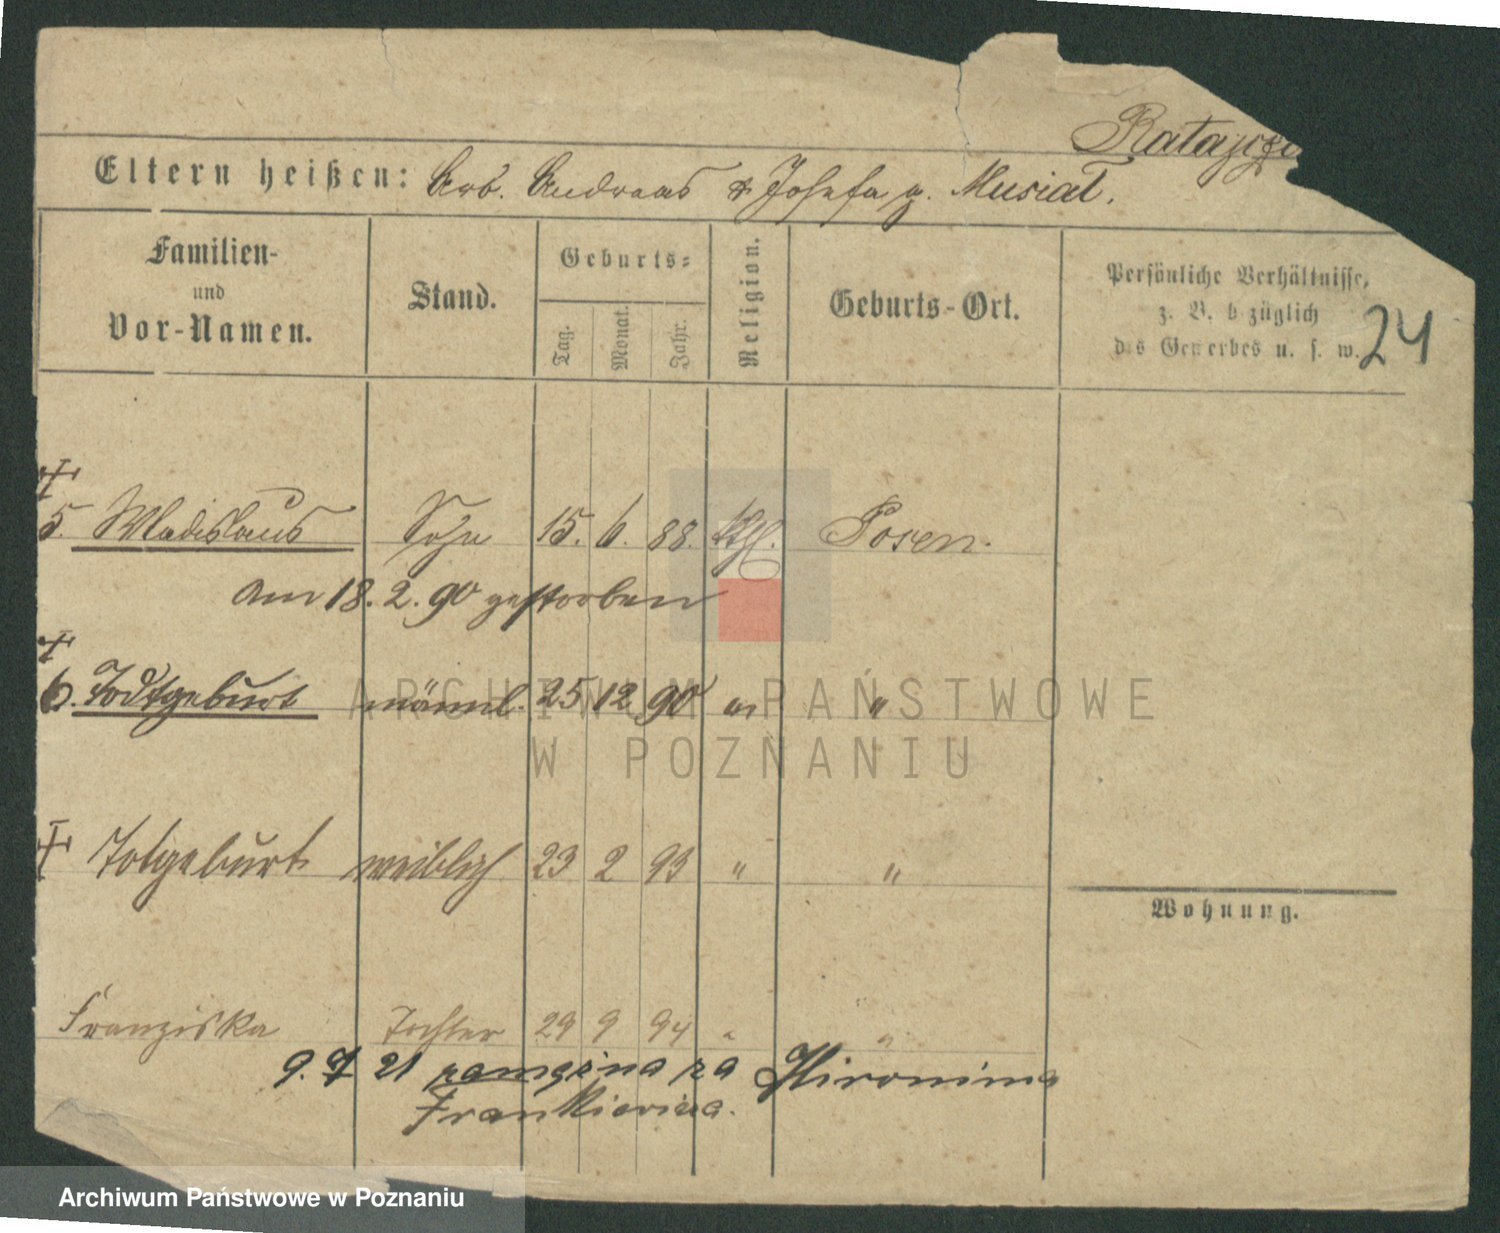 Ratajcza
Eltern heißen: Arb. Andreas & Josefa g. Musiał.
Familien- und Vor-Namen.
Stand.
Geburts-
Tag.
Monat.
Jahr.
Religion.
Geburts-Ort.
Persönliche Verhältnisse,
z. B. bezüglich
des Gewerbes u. s. w.
24
5. Wladislaus Sohn 15. 6. 88. kth. Posen.
am 18. 2. 90 gestorben
6. Todtgeburt männl. 25 12 90 " "
Totgeburt weiblich 23 2 93 " "
Wohnung.
Franziska Tochter 29 9 94 " "
9. 7 21 zamężna za Hironima
Frankiewicza.
ARCHIWUM PAŃSTWOWE
W POZNANIU
Archiwum Państwowe w Poznaniu